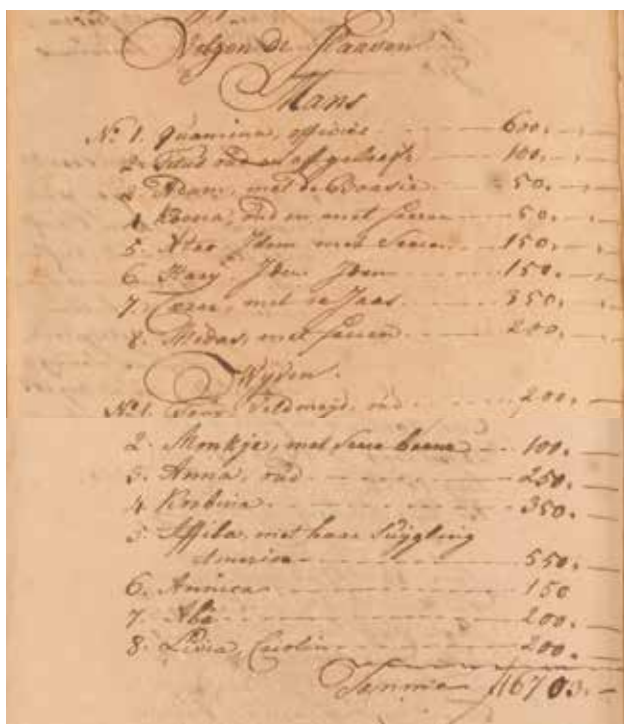 Volgen de Slaaven
Mans
N.º 1. Quamina, officier 600,
2. Titus oud en afgeleeft 100,
3. Adam, met de Boasie 50,
4. oud en met seeren 50,
5. Idem met Seeren 150,
6. Harry Idem Idem 150,
7. Cesar, met de Jaas 350,
8. Midas, met seeren 200,
Wijven.
N.º 1. Veldmeyd, oud 200,
2. Monkje, met seere beene 100,
3. Anna, oud 250,
4. Korbina 350,
5. Affiba, met haar Suijgling
America 550,
6. Annica 150
7. Aba 200,
8. Livia, Creolin 200,
Somma ƒ 16703,